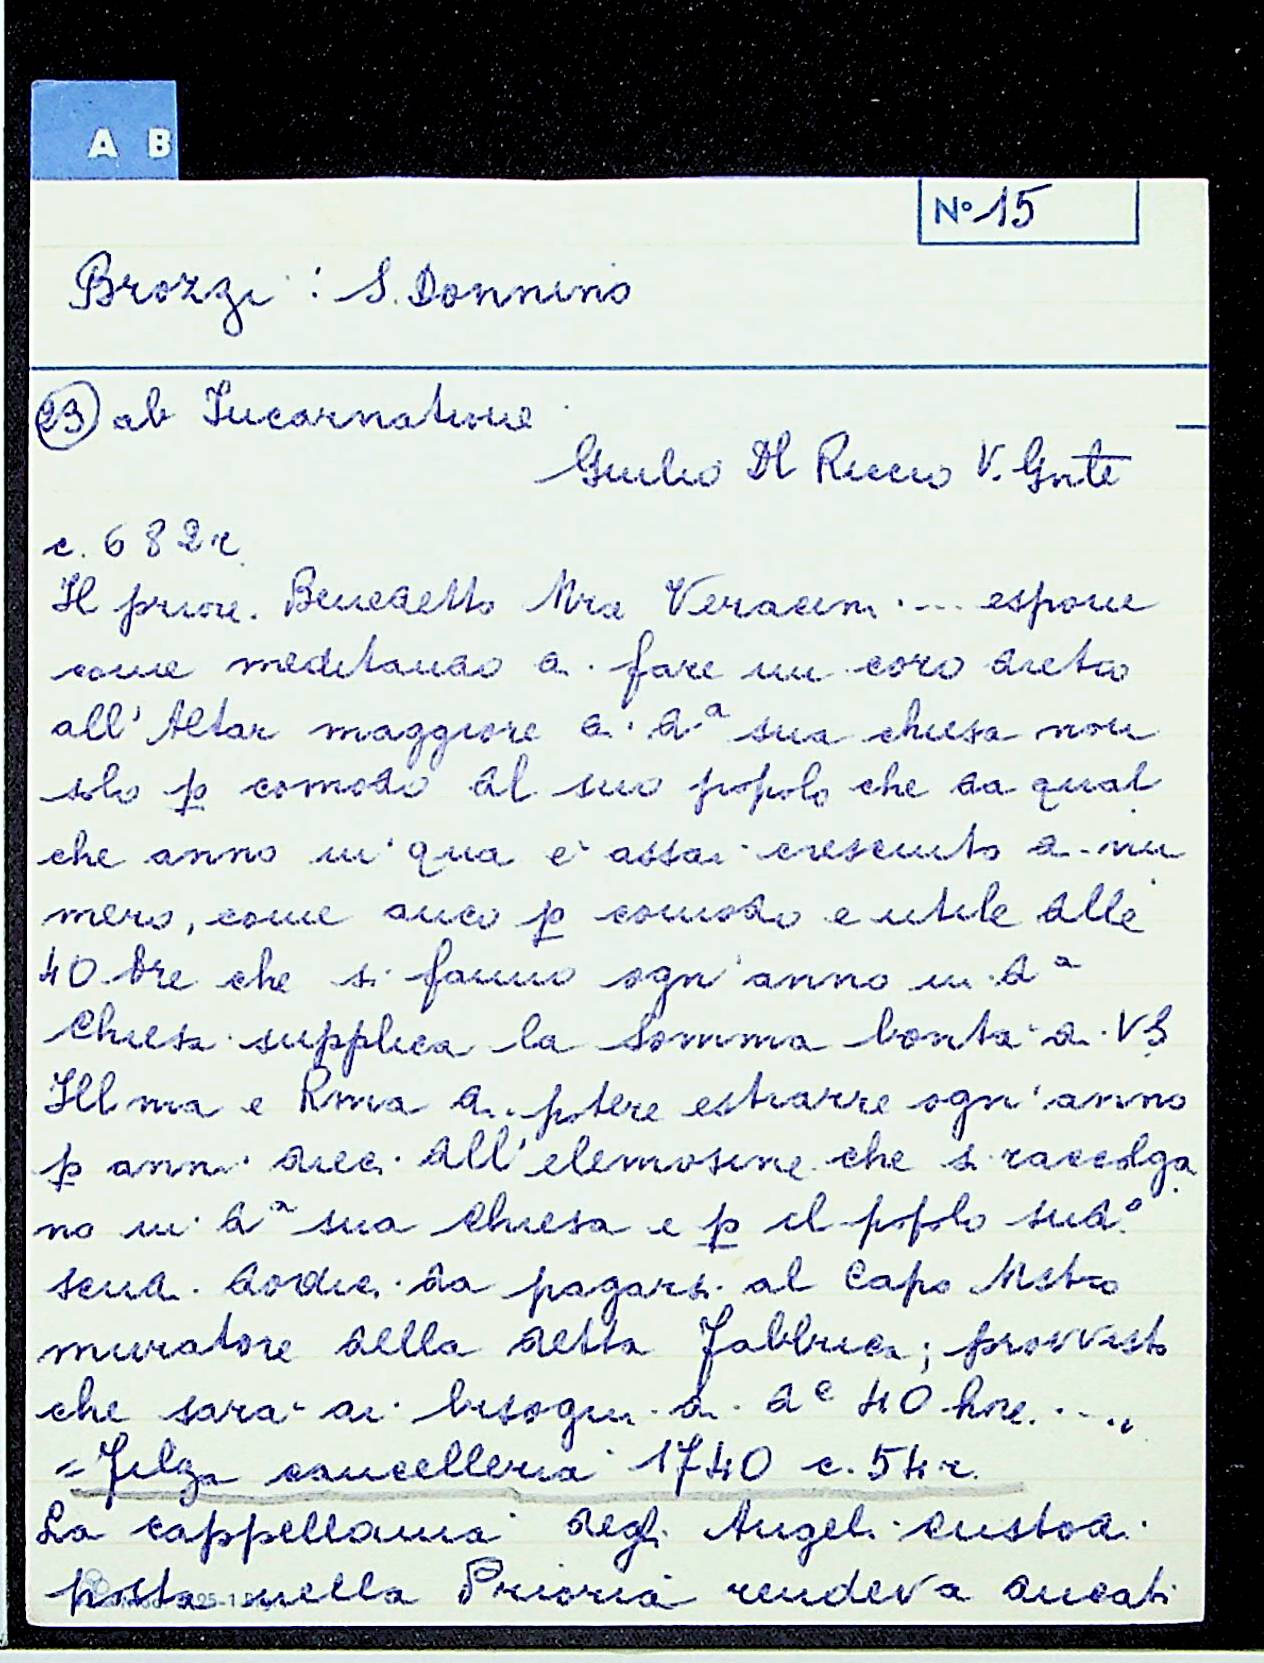 A B
Nº 15
Brozzi : S. Donnino
23) ab Incarnatione
Giulio Dl Riccio V. Gnte
c. 682r
Il priore. Benedetto Mra Veracini .... espone
come meditando di fare un coro dietro
all'Altar maggiore di dª sua chiesa non
solo p comodo dl suo popolo che da qual
che anno in qua è assai cresciuto di nu
mero, come anco p comodo e utile dlle
40 Ore che si fanno ogn'anno in dª
Chiesa supplica la Somma bontà di VS
Illma e Rma di potere estrarre ogn'anno
p anni dieci dll'elemosine che si raccolga
no in dª sua Chiesa e p il popolo sudº
scudi dodici da pagarsi al Capo Mstro
muratore dlla detta Fabbrica; provvisto
che sarà ai bisogni di de 40 hore. ....
= Filza cancelleria 1740 c. 54r.
La cappellania degli Angeli custodi
posta nella Prioria rendeva ducati